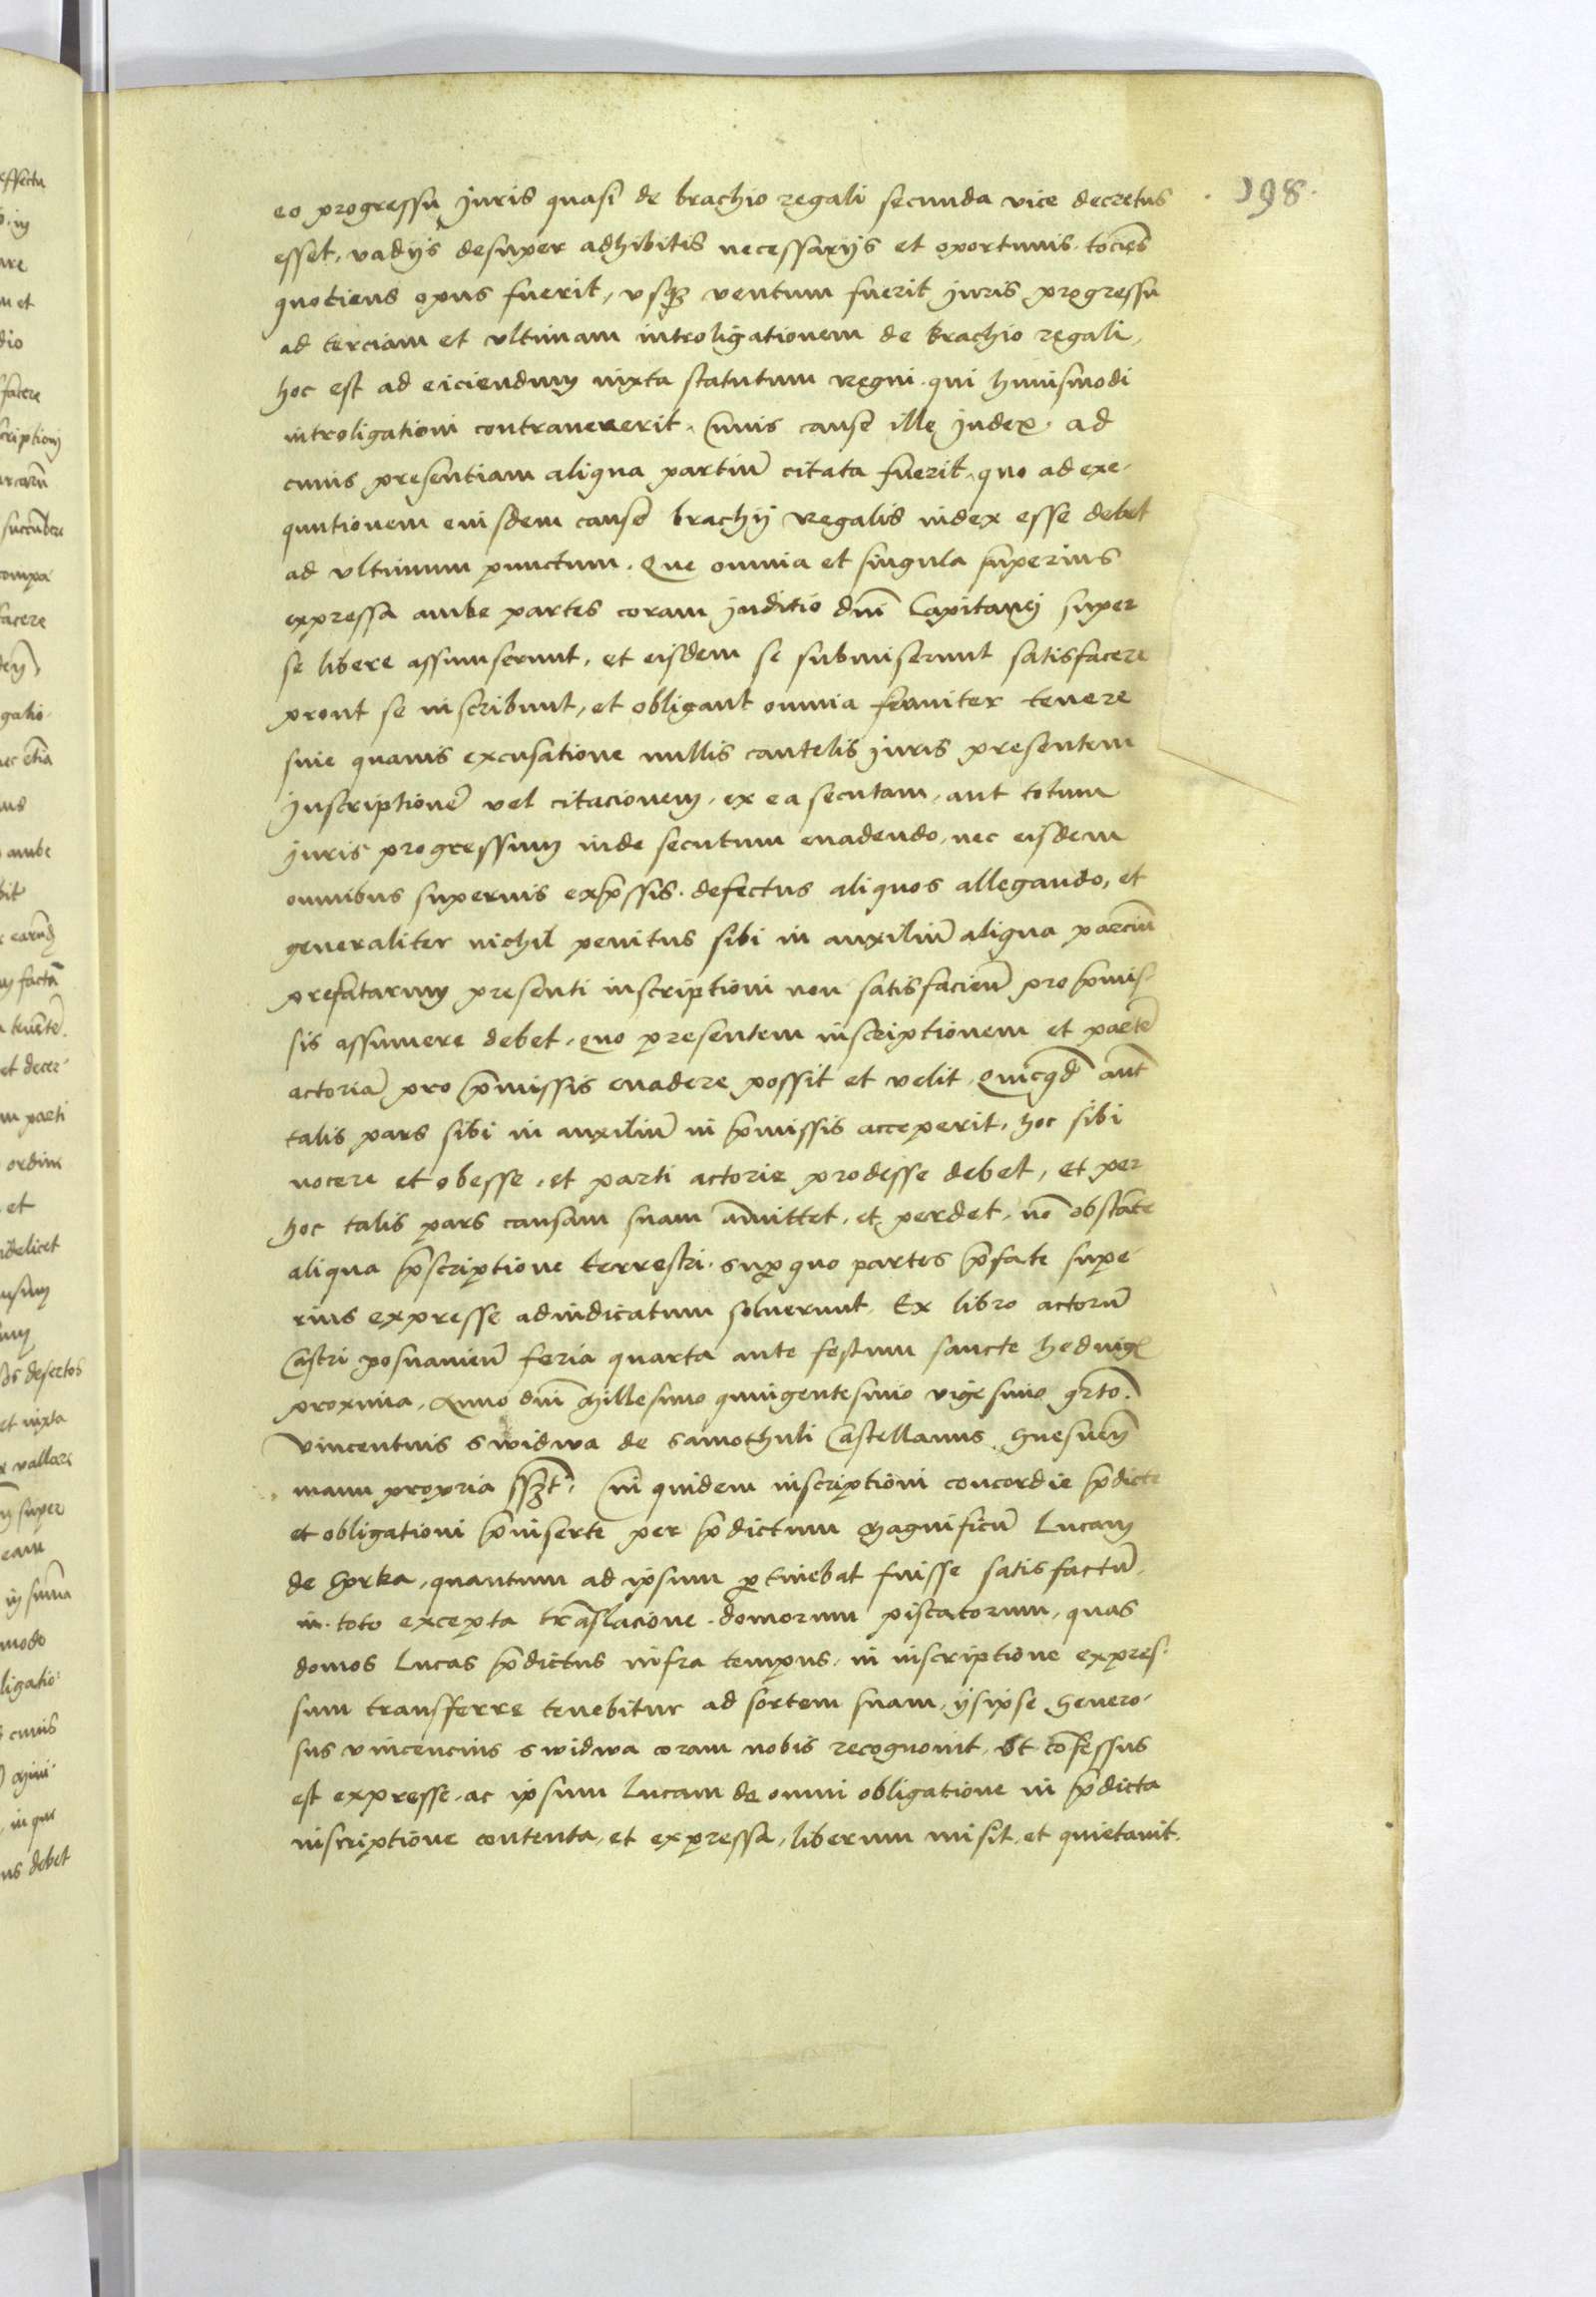 198.
eo progressu Juris quasi de brachio regali secunda vice decretus
esset, vadijs desuper adhibitis necessarijs et oportunis. tocie͂s
quotiens opus fuerit, vsq₃ ventum fuerit juris progressu
ad terciam et vltimam introligationem de brachio regali,
hoc est ad eiciendum iuxta statutum regni. qui huiusmodi
introligationi contravenerit. Cuius cause ille Judex. ad
cuius presentiam aliqua partiu͂ citata fuerit, quo ad exe-
quutionem euisdem cause brachij regalis iudex esse debet
ad vltimum punctum. Que omnia et singula superius
expressa ambe partes coram juditio dn͂i Capitanej super
se libere assumserunt, et eisdem se submiserunt satisfacere
prout se inscribunt, et obligant omnia firmiter tenere
sine quauis excusatione nullis cautelis juris presentem
Jnscriptione͂ vel citacionem, ex ea secutam, aut totum
juris progressum inde secutum euadendo, nec eisdem
omnibus superius exp͂ssis. defectus aliquos allegando, et
generaliter nichil penitus sibi in auxiliu͂ aliqua parciu͂
prefatarum presenti inscriptioni non satisfacien͂ pro p͂mis-
sis assumere debet. quo presentem inscriptionem et parte͂
actoria͂ pro p͂missis euadere possit et velit, Quicq͂d aut͂
talis pars sibi in auxiliu͂ in p͂missis acceperit, hoc sibi
nocere et obesse, et parti actorie prodesse debet, et per
hoc talis pars causam suam a͂mittet, et perdet, no͂ obsta͂te
aliqua p͂scriptione terrestri. sup̱ quo partes p͂fate supe-
rius expresse adiudicatum soluerunt. Ex libro actoru͂
Castri posnanien͂ feria quarta ante festum sancte hedwigꝭ
proxima, Anno dn͂i Millesimo quingentesimo vigesimo q͂rto.
Vincentius swidwa de samothuli Castellanus gnesnen͂
manu propria ss₃t. Cui quidem inscriptioni concordie p͂dicte
et obligationi p͂inserte per p͂dictum Magnificu͂ Lucam
de Gorka, quantum ad ipsum p̱tinebat fuisse satisfactu͂,
in toto excepta tra͂slacione. domorum piscatorum, quas
domos Lucas p͂dictus infra tempus, in inscriptione expres-
sum transferre tenebitur ad sortem suam, ipsipse Genero-
sus vincencius swidwa coram nobis recognouit, Et co͂fessus
est expresse, ac ipsum Lucam de omni obligatione in p͂dicta
inscriptione contenta, et expressa, liberum misit, et quietauit.